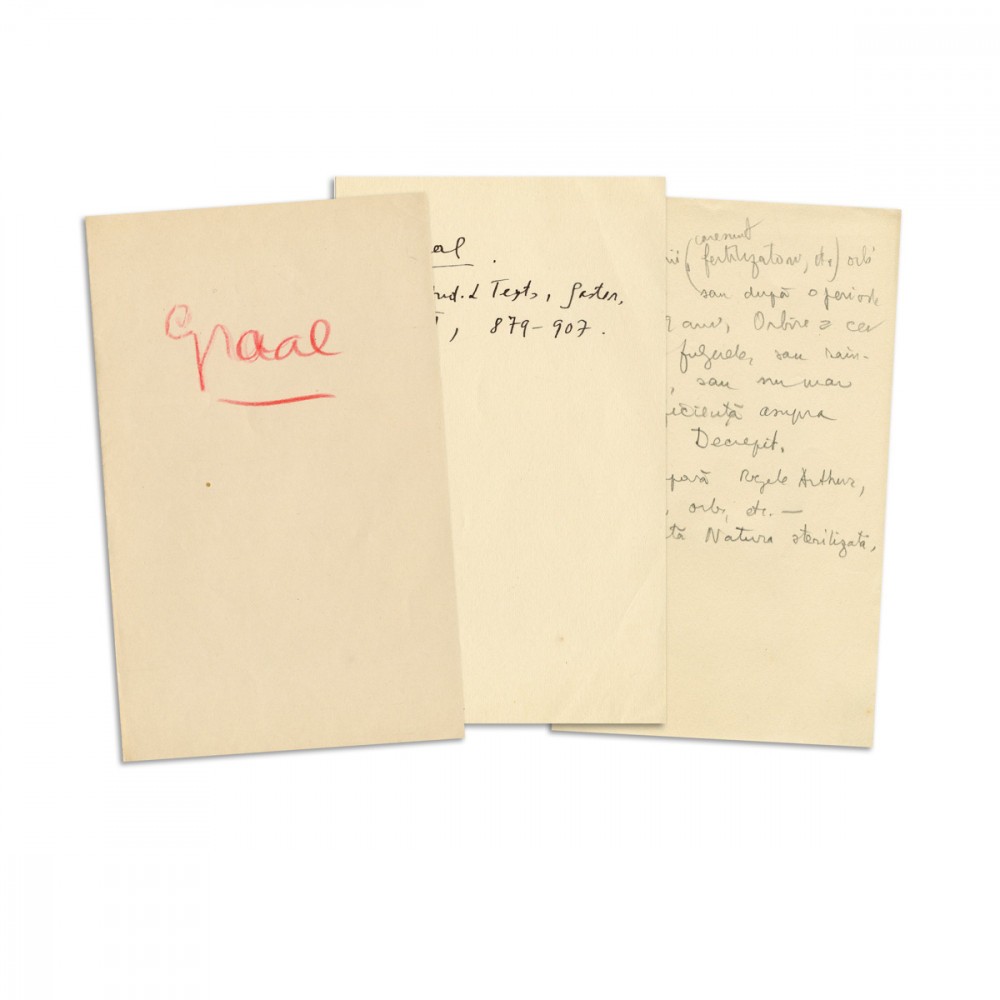 Graal
al.
ud. & Texts, Gaster,
, 879-907.
care sunt
(fertilizatori, etc) orbi
sau după o periodă
ani, Orbirea
fulgerele, sau rain-
, sau nu mai
ficiență asupra
Decrepit.
pară Regele Arthur,
, orb, etc. —
tă Natura sterilizată,